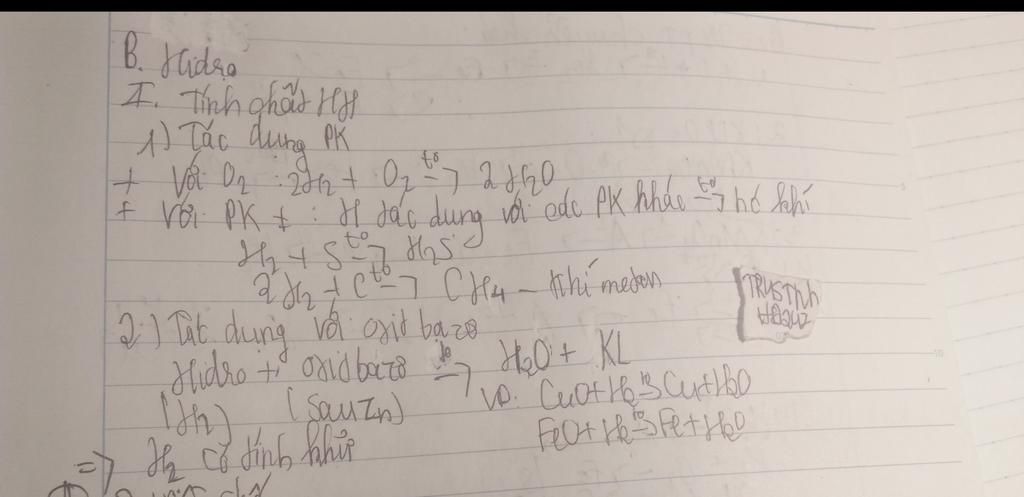 B. Hidro
I. Tính chất HH
1) Tác dụng PK
+ Với O2 : 2H2 + O2 t°→ 2H2O
+ Với PK ≠ : H tác dụng với các PK khác t°→ h/c khí
H2 + S t°→ H2S
2H2 + C t°→ CH4 – Khí metan
2) Tác dụng với oxit bazo
Hidro + oxit bazo t°→ H2O + KL
(H2) (Sau Zn)
VD: CuO+H2 t°→ Cu+H2O
FeO+H2 t°→ Fe+H2O
=> H2 có tính khử